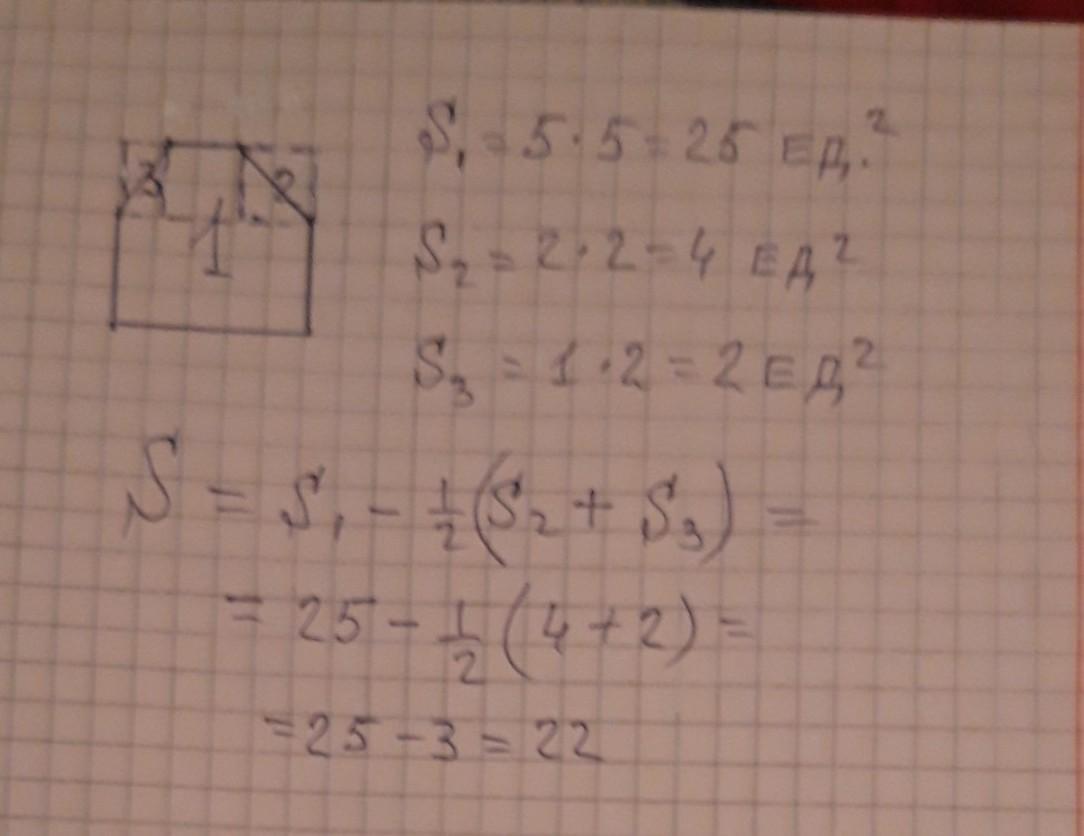 3 2
1
S₁ = 5·5 = 25 ЕД.²
S₂ = 2·2 = 4 ЕД²
S₃ = 1·2 = 2 ЕД²
S = S₁ - 1/2(S₂ + S₃) =
= 25 - 1/2(4+2) =
= 25 - 3 = 22